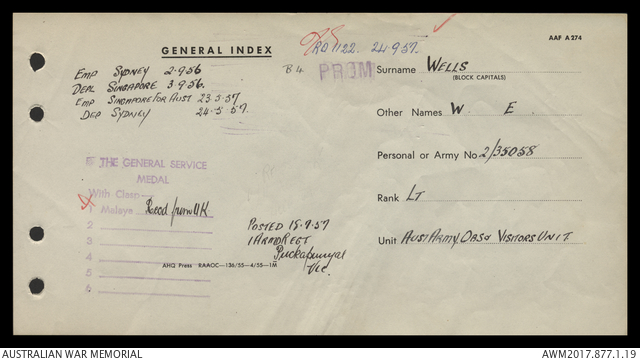 GENERAL INDEX
RO 1122. 24.9.57.
AAF A274
Emp SYDNEY 2.9.56
DEPL SINGAPORE 3.9.56.
Emp SINGAPORE FOR AUST 23.5.57
DEP SYDNEY 24.5.57.
B4
PROM
Surname WELLS
(BLOCK CAPITALS)
Other Names W. E.
Personal or Army No 2/35058
Rank LT
Unit AUST ARMY OBSR VISITORS UNIT
THE GENERAL SERVICE
MEDAL
With Clasp
1 Malaya Recd from UK
2
3
4
5
6
POSTED 18.9.57
1 ARMD REGT
Puckapunyal
Vic.
AHQ Press RAAOC—136/55—4/55—1M
AUSTRALIAN WAR MEMORIAL
AWM2017.877.1.19